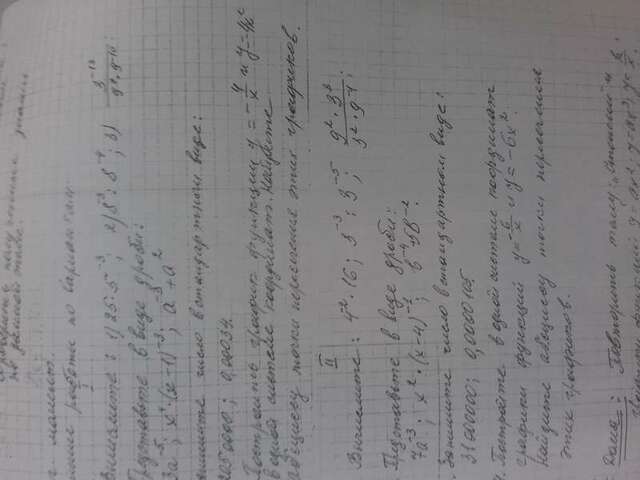 проверить полученные знания
по данной теме.
г. момент.
ние работы по вариантам
I
Вычислите: 1) 25·5⁻³; 2) 8⁻³ : 8⁻⁴; 3) 3⁻¹⁸
Представьте в виде дроби:
3a⁻⁵; (x-1)⁻³; a⁻³+a²
апишите число в стандартном виде:
2050000; 0,00034.
Построить график функции y = -4/x и y = 4x²
в одной системе координат. Найдите
абсциссу точки пересечения этих графиков.
II
Вычислите: 4⁻²·16; 3⁻³ : 3⁻⁵;
Представьте в виде дроби:
7a⁻³; x²·(x-4)⁻¹;
Запишите число в стандартном виде:
31000000; 0,0000105
Постройте в одной системе координат
графики функций y = -6/x и y = -6x².
Найдите абсциссу точки пересечения
этих графиков.
Дома: Повторить тему: и
функций y = ax²; y = ax³; y = k/x